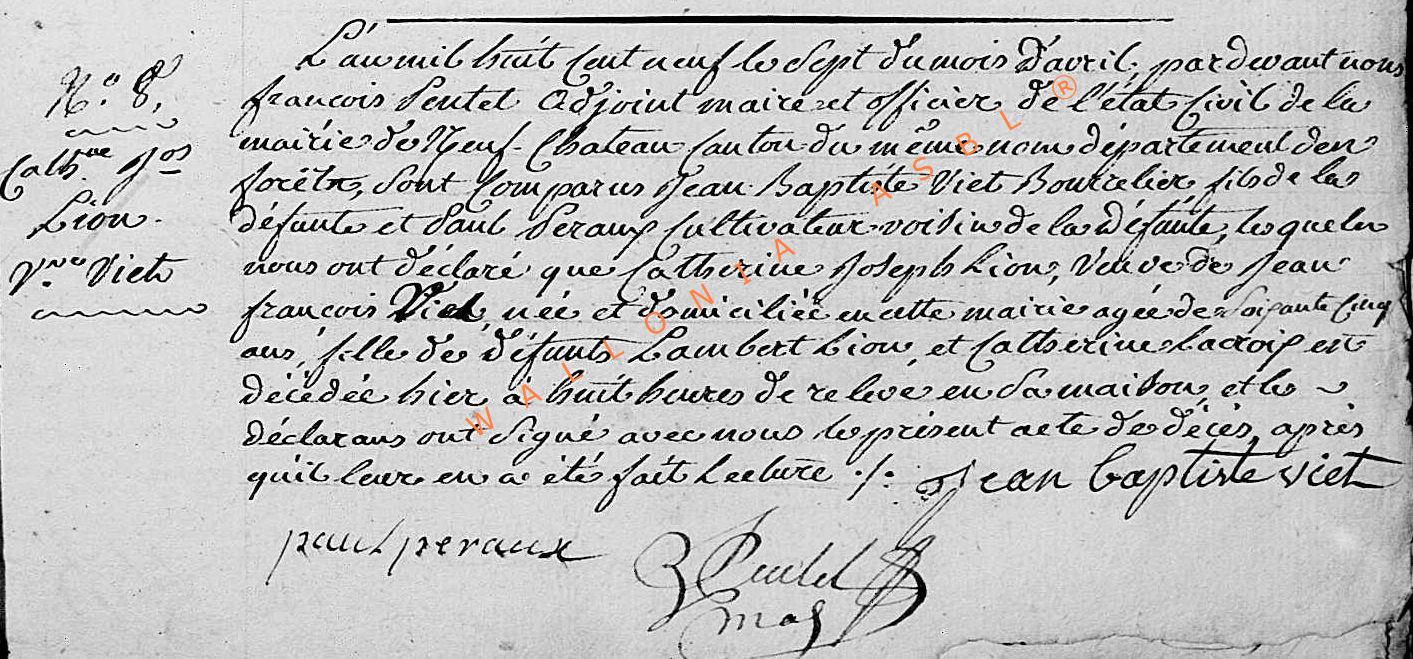 N.o 8,
Cath.ne Jos
Lion.
V.ve Viet
L'an mil huit cent neuf le sept du mois d'avril, par devant nous
françois Pentel adjoint maire et officier de l'état civil de la
mairie de Neuf-Chateau canton du même nom département des
forêts, sont comparus Jean Baptiste Viet Bourrelier fils de la
défunte et Paul Peraux cultivateur voisin de la défunte, lesquels
nous ont déclaré que Catherine Joseph Lion, veuve de Jean
françois Viet, née et domiciliée en cette mairie agée de soixante cinq
ans, fille de défunts Lambert Lion et Catherine Lacroix est
décédée hier à huit heures de relevé en sa maison, et les
déclarans ont signé avec nous le présent acte de décès, après
qu'il leur en a été fait lecture ./. Jean baptiste viet
paul peraux
Pentel
WALLONIA ASBL ®